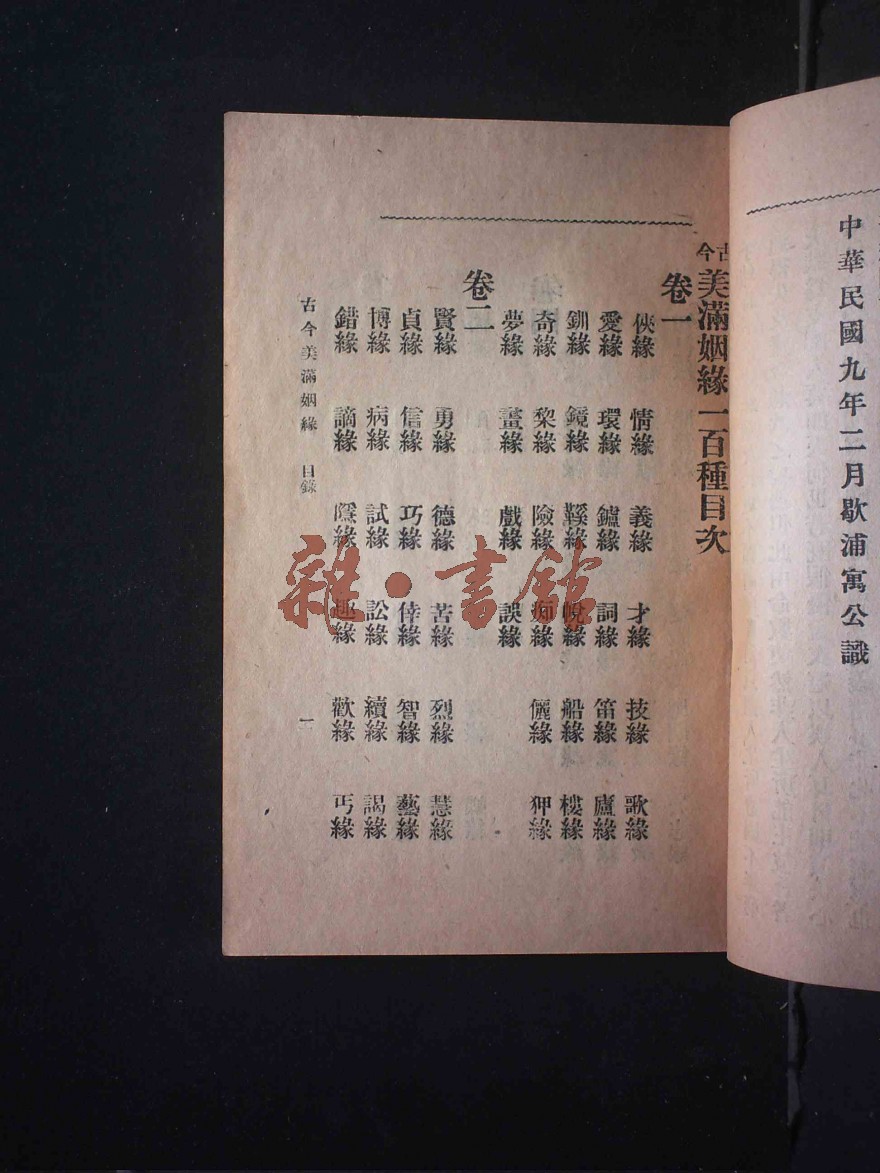 中華民國九年二月歇浦寓公識
古今美滿姻緣一百種目次
卷一
俠緣 情緣 義緣 才緣 技緣 歌緣
愛緣 環緣 鑪緣 詞緣 笛緣 廬緣
釧緣 鏡緣 鞵緣 帨緣 船緣 樓緣
奇緣 棃緣 險緣 痴緣 儷緣 狎緣
夢緣 畫緣 戲緣 誤緣
卷二
賢緣 勇緣 德緣 苦緣 烈緣 慧緣
貞緣 信緣 巧緣 倖緣 智緣 藝緣
博緣 病緣 試緣 訟緣 續緣 謁緣
錯緣 謫緣 隱緣 趣緣 歡緣 丐緣
古今美滿姻緣 目錄 一
雜·書館